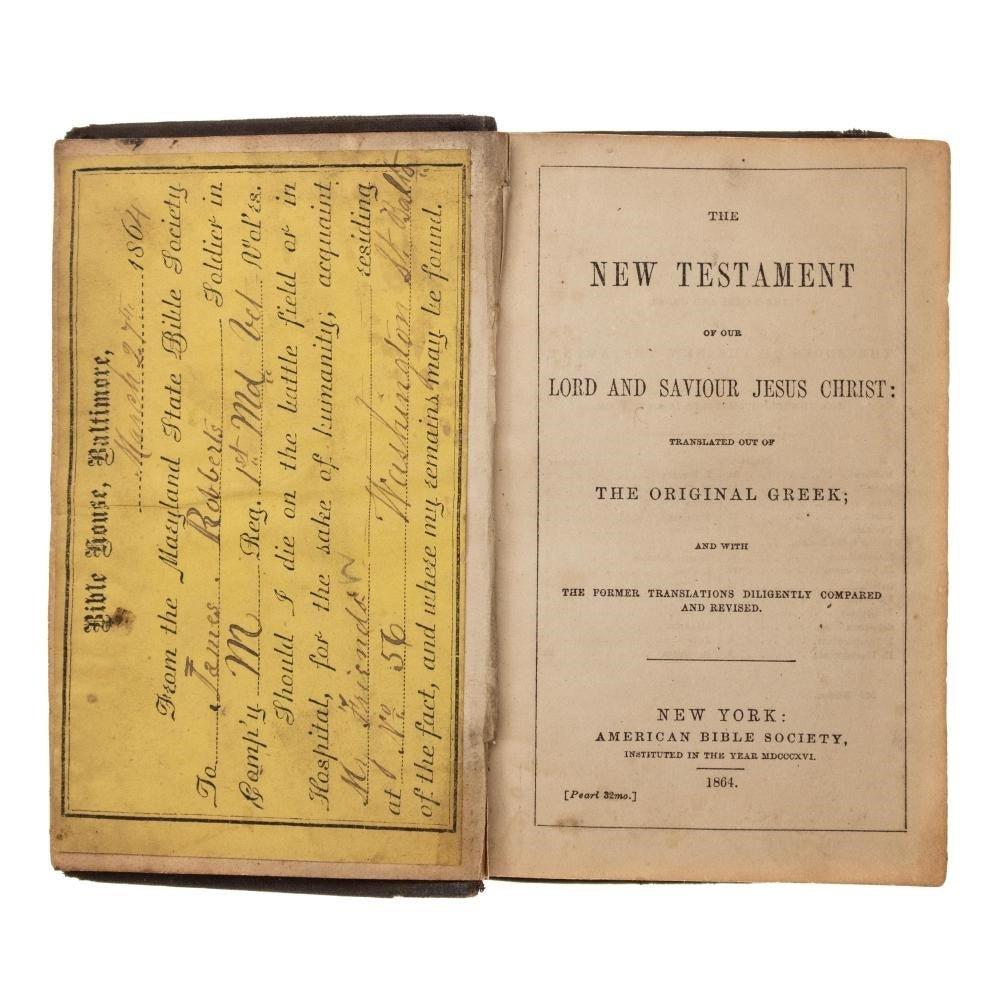 Bible House, Baltimore,
March 27th 1864
From the Maryland State Bible Society
To James Robberts Soldier in
Comp'y M Reg. 1st Md Vol'rs.
Should I die on the battle field or in
Hospital, for the sake of humanity, acquaint
residing
at No 56 Washington St Balto
of the fact, and where my remains may be found.
THE
NEW TESTAMENT
OF OUR
LORD AND SAVIOUR JESUS CHRIST:
TRANSLATED OUT OF
THE ORIGINAL GREEK;
AND WITH
THE FORMER TRANSLATIONS DILIGENTLY COMPARED
AND REVISED.
NEW YORK:
AMERICAN BIBLE SOCIETY,
INSTITUTED IN THE YEAR MDCCCXVI.
1864.
[Pearl 32mo.]